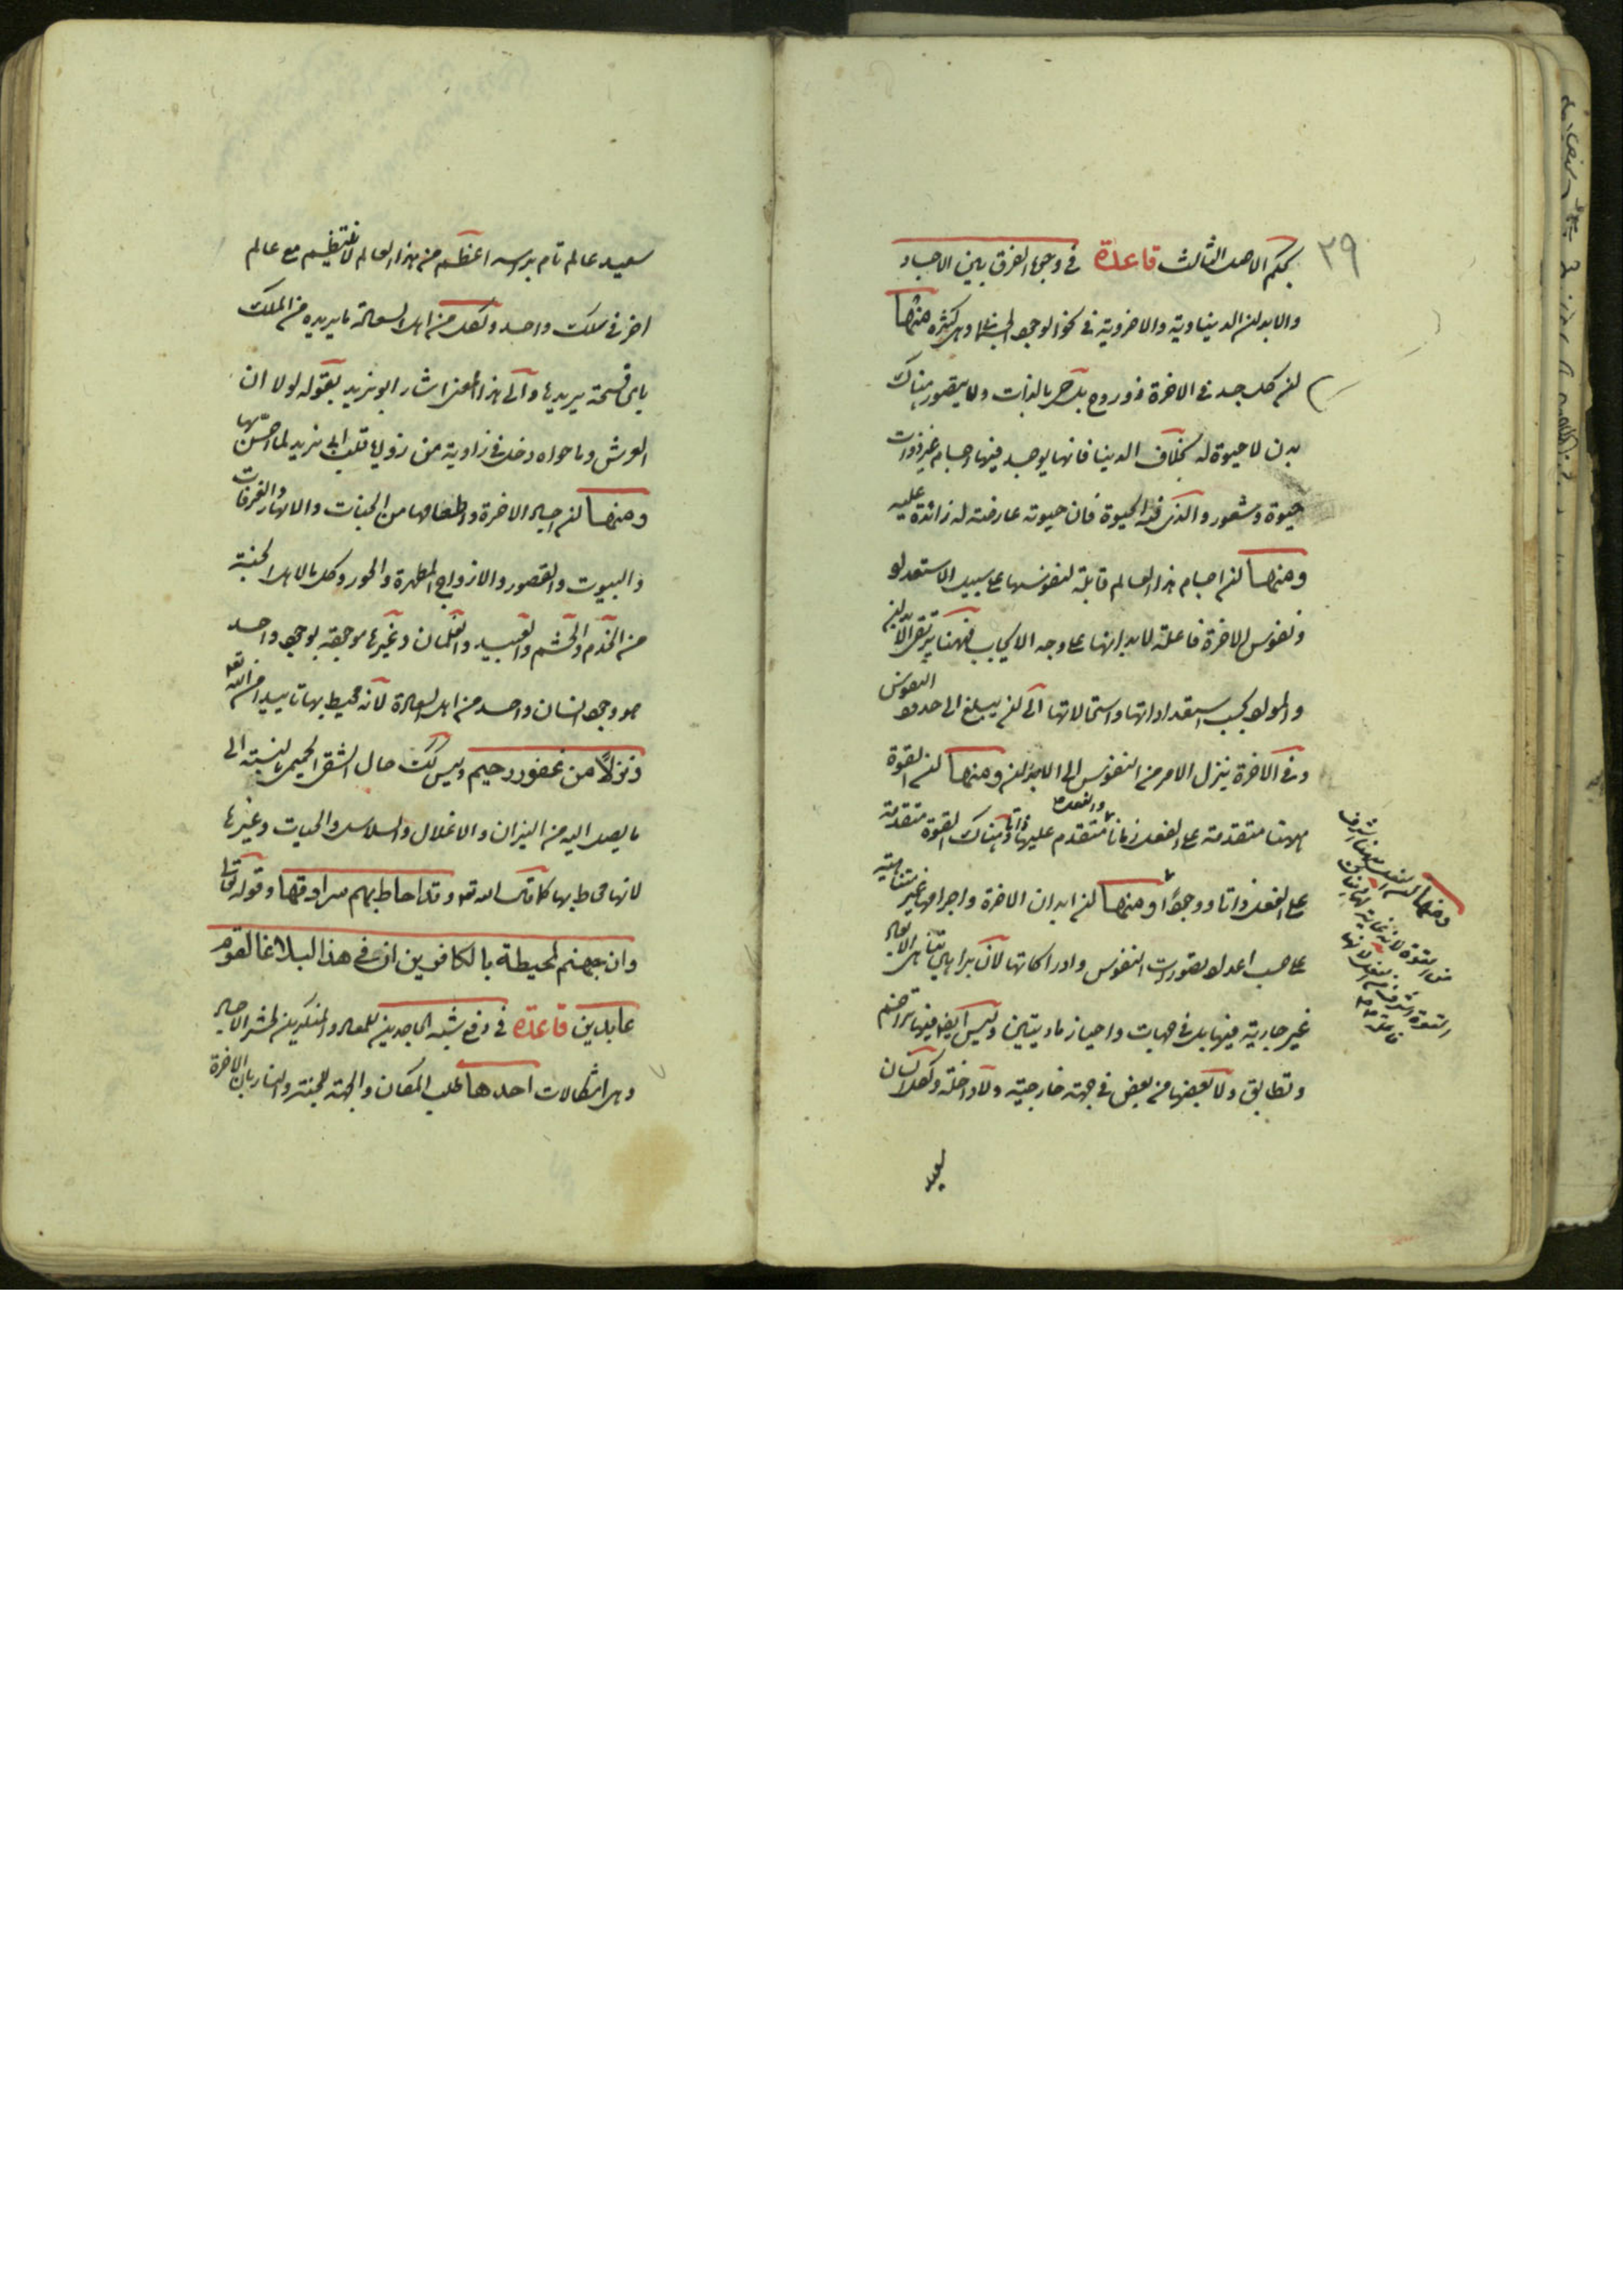 ٣٩
بحكم الاصل الثالث قاعدة في وجوه الفرق بين الاجساد
والابدان الدنياوية والاخروية في نحو الوجود الجسماني وهي كثيرة منها
ان كل جسد في الاخرة ذو روح بل حي بالذات ولا يتصور هناك
بدن لا حيوة له بخلاف الدنيا فانها يوجد فيها اجسام غير ذوات
حيوة وشعور والذي فيه الحيوة فان حيوته عارضة له زائدة عليه
ومنها ان اجسام هذا العالم قابلة لنفوسها على سبيل الاستعداد
ونفوس الاخرة فاعلة لابدانها على وجه الايجاب فههنا يرتقي الابدان
والمواد بحسب استعداداتها واستحالاتها الى ان يبلغ الى حدود النفوس
وفي الاخرة ينزل الامر من النفوس الى الابدان ومنها ان القوة
ههنا متقدمة على الفعل زمانا والفعل متقدم عليها ذاتا وهناك القوة متقدمة
على الفعل ذاتا ووجودا ومنها ان ابدان الاخرة واجرامها غير متناهية
على حسب اعداد تصورات النفوس وادراكاتها لان براهين تناهي الابعاد
غير جارية فيها بل في جهات واحياز ماديتين وليس ايضا فيها تزاحم
وتطابق ولا بعضها من بعض في جهة خارجية ولا داخلة ولكل انسان
سعيد
ومنها ان الفعل ههنا اشرف
من القوة لانه غاية لها وهناك
القوة اشرف من الفعل لانها
فاعلة له
سعيد عالم تام براسه اعظم من هذا العالم لا ينتظم مع عالم
اخر في سلك واحد ولكل من اهل السعادة ما يريده من الملك
باي فسحة يريدها والى هذا المعنى اشار ابو يزيد بقوله لو لا ان
العرش وما حواه دخل في زاوية من زوايا قلب ابي يزيد لما احس بها
ومنها ان اجساد الاخرة واعظامها من الجنات والانهار والغرفات
والبيوت والقصور والازواج المطهرة والحور وكل ما لاهل الجنة
من الخدم والحشم والعبيد والغلمان وغيرها موجودة بوجود واحد
هو وجود انسان واحد من اهل السعادة لانه محيط بها تاييدا من الله
ونزلا من غفور رحيم وليس كك حال الشقي الجحيمي بالنسبة الى
ما يصل اليه من النيران والاغلال والسلاسل والحيات وغيرها
لانها محاط بها كما قال الله تعه وقد احاط بهم سرادقها وقوله تعالى
وان جهنم لمحيطة بالكافرين ان في هذا لبلاغا لقوم
عابدين قاعدة في دفع شبه الجاحدين للمعاد والمنكرين لحشر الاجساد
وهي اشكالات احدها طلب المكان والجهة للجنة والنار بان الاخرة